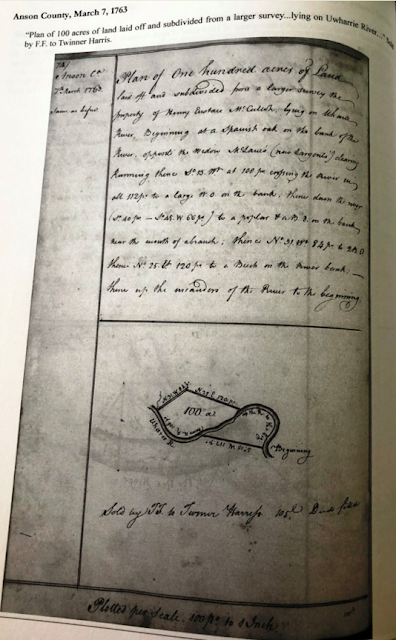 Anson County, March 7, 1763
"Plan of 100 acres of land laid off and subdivided from a larger survey...lying on Uwharrie River..."
by F.F. to Twinner Harris.
Anson Co.
7th March 1763
Same as before
Plan of One hundred acres of Land
laid off and subdivided from a larger survey the
property of Henry Eustace McCulloh lying on
River, Beginning at a Spanish oak on the bank of the
River, opposite the Widow
Running thence So. 13. Wt. at 100 po. crossing the River in
all 112 po. to a large R O on the bank, thence down the river
to a poplar & a B. O. on the bank
near the mouth of a branch; thence No. 31 Wt. 84 po. to 2 B O
thence No. 25 Et. 120 po. to a Beech on the River bank,
thence up the meanders of the River to the beginning
100 ac
Uharee R
Beginning
Sold by F.F. to Twinner Harris
Plotted per Scale, 100 po. to 1 Inch